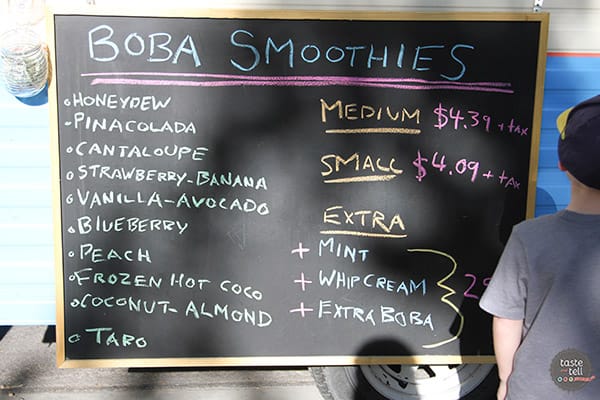 BOBA SMOOTHIES
HONEYDEW
PINACOLADA
CANTALOUPE
STRAWBERRY-BANANA
VANILLA-AVOCADO
BLUEBERRY
PEACH
FROZEN HOT COCO
COCONUT-ALMOND
TARO
MEDIUM $4.39 + tax
SMALL $4.09 + tax
EXTRA
+ MINT
+ WHIPCREAM
+ EXTRA BOBA
taste
and
tell